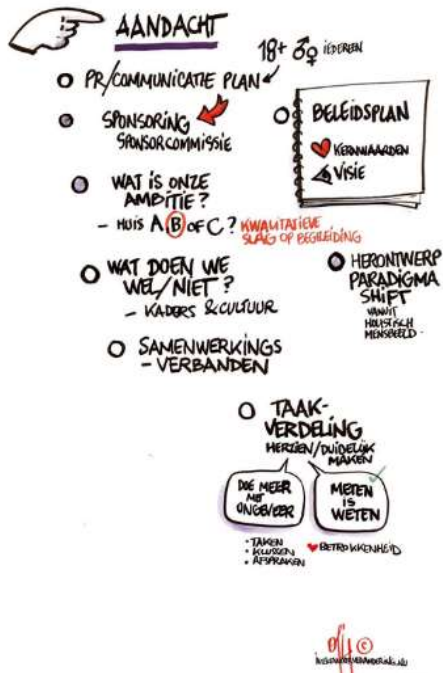 AANDACHT
18+ IEDEREEN
PR/COMMUNICATIE PLAN
SPONSORING
SPONSORCOMMISSIE
BELEIDSPLAN
KERNWAARDEN
VISIE
WAT IS ONZE
AMBITIE?
- HUIS A, B OF C? KWALITATIEVE
SLAG OP BEGELEIDING
WAT DOEN WE
WEL/NIET?
- KADERS & CULTUUR
HERONTWERP
PARADIGMA
SHIFT
VANUIT
HOLISTISCH
MENSBEELD
SAMENWERKINGS
- VERBANDEN
TAAK-
VERDELING
HERZIEN/DUIDELIJK
MAKEN
DOE MEER
MET
ONGEVEER
METEN
IS
WETEN
• TAKEN
• KLUSSEN
• AFSPRAKEN
BETROKKENHEID
©